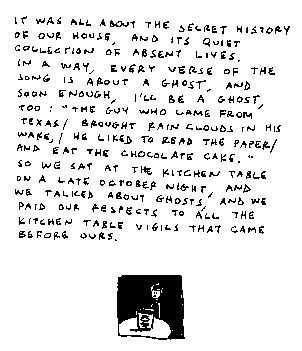 IT WAS ALL ABOUT THE SECRET HISTORY
OF OUR HOUSE, AND ITS QUIET
COLLECTION OF ABSENT LIVES.
IN A WAY, EVERY VERSE OF THE
SONG IS ABOUT A GHOST, AND
SOON ENOUGH, I'LL BE A GHOST,
TOO: "THE GUY WHO CAME FROM
TEXAS/ BROUGHT RAIN CLOUDS IN HIS
WAKE,/ HE LIKED TO READ THE PAPER/
AND EAT THE CHOCOLATE CAKE."
SO WE SAT AT THE KITCHEN TABLE
ON A LATE OCTOBER NIGHT, AND
WE TALKED ABOUT GHOSTS, AND WE
PAID OUR RESPECTS TO ALL THE
KITCHEN TABLE VIGILS THAT CAME
BEFORE OURS.